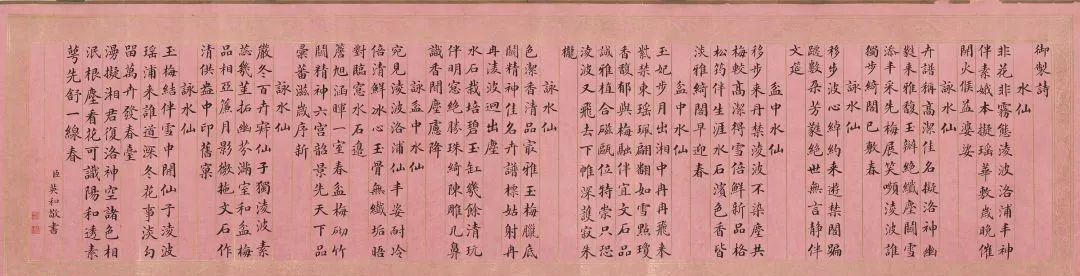 御製詩
水仙
非花非霧態淩波洛浦丰神
伴素娥本擬瑤華敷歲晚催
開火候益婆娑
詠水仙
卉譜稱高潔佳名擬洛神幽
來雅馥玉瓣絕纖塵鬭雪
添丰采先梅展笑嚬淩波誰
獨步綺閣已敷春
詠水仙
移步波心綽約來遊禁閣騙
蹤數朵芳蕤絕世無言靜伴
文筵
盆中水仙
移步來丹禁淩波不染塵共
梅較高潔雪倍鮮新品格
松筠伴生涯水石濱色香皆
淡雅綺閣早迎春
盆中水仙
玉妃步月出湘中冉冉飛來
紫禁東瑤珮翩翻如雪點瓊
香馥郁與梅融伴宜文石品
誠雅植合磁甌位特崇只恐
淩波又飛去下帷深護寂朱
櫳
詠水仙
色潔香清品最雅玉梅臘底
鬭精神佳名卉譜標姑射冉
冉淩波迥出塵
水石栽培碧玉缸幾餘清玩
伴明窓絕勝珠綺陳雕几鼻
識香聞塵慮降
詠水仙
宛見淩波洛浦仙丰姿耐冷
倍清鮮冰心玉骨無纖垢晤
對臨窓水石邊
簷旭涵暉一室春盆梅砌竹
鬭精神六宮韶景先天下品
彙蕃滋歲序新
詠水仙
嚴冬百卉寂仙子獨淩波素
蕊幾莖拓幽芬滿室和盆梅
品相亞簾月影微拖文石作
清供盎中印舊窠
詠水仙
玉梅結伴雪中開仙子淩波
瑤浦來誰道深冬花事淡勻
留萬卉發春臺
漫擬湘君復洛神空諸色相
泯根塵看花可識陽和透素
萼先舒一線春
臣英和敬書